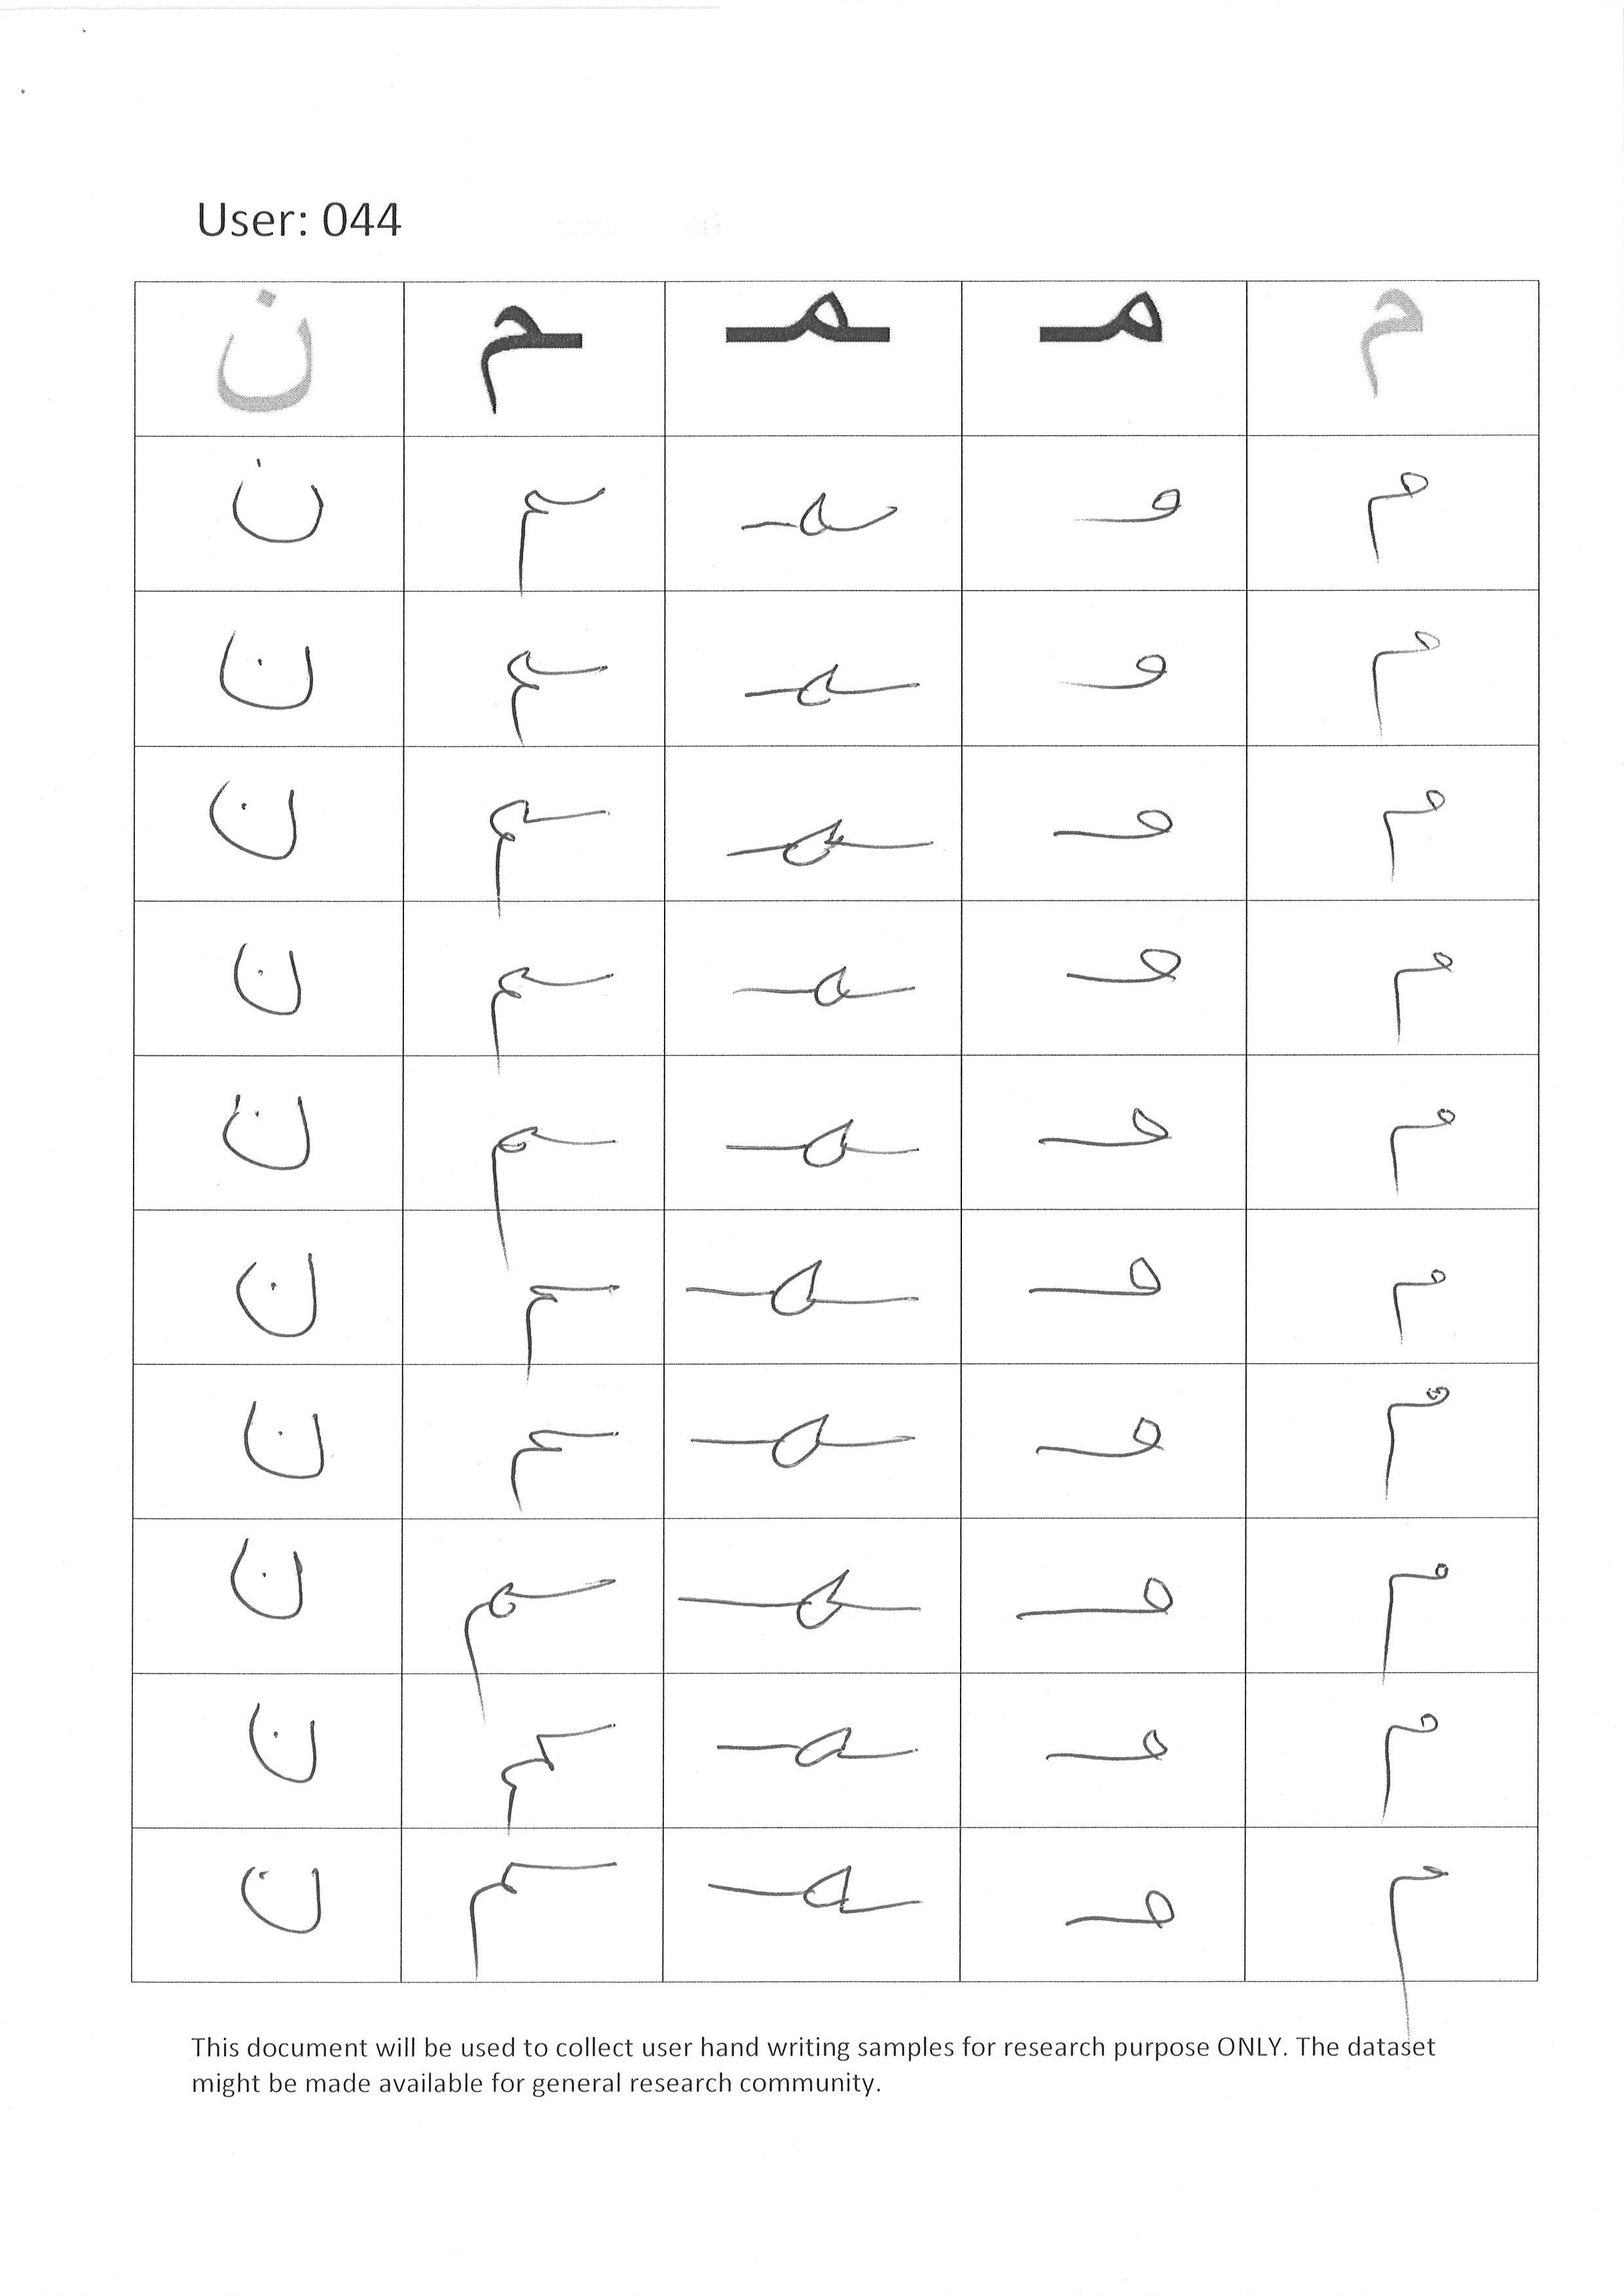 User: 044
م مـ ـمـ ـم ن
م مـ ـمـ ـم ن
م مـ ـمـ ـم ن
م مـ ـمـ ـم ن
م مـ ـمـ ـم ن
م مـ ـمـ ـم ن
م مـ ـمـ ـم ن
م مـ ـمـ ـم ن
م مـ ـمـ ـم ن
م مـ ـمـ ـم ن
م مـ ـمـ ـم ن
This document will be used to collect user hand writing samples for research purpose ONLY. The dataset
might be made available for general research community.